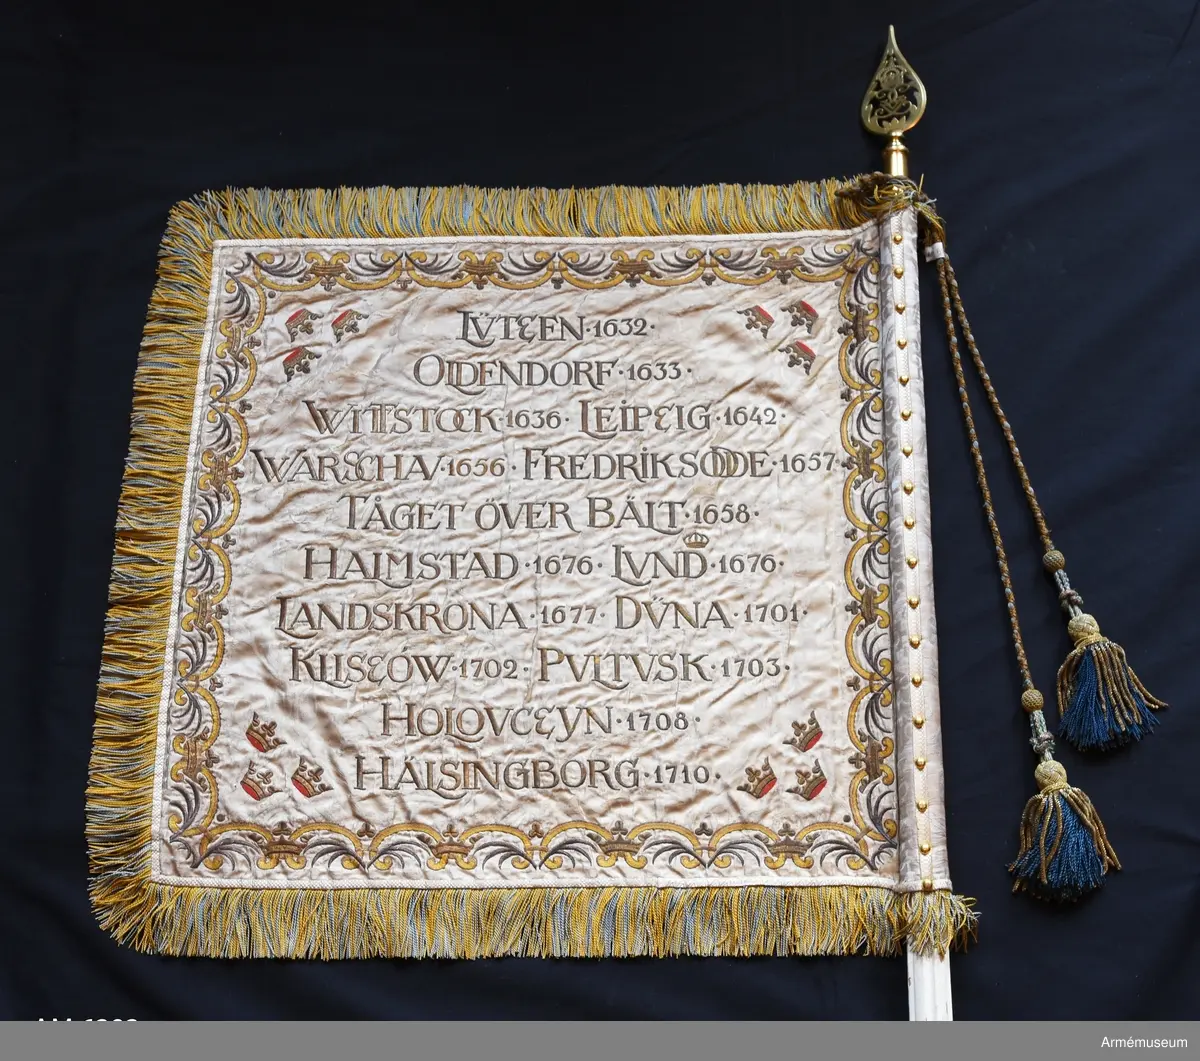 LÜTZEN · 1632 ·
OLDENDORF · 1633 ·
WITTSTOCK · 1636 · LEIPZIG · 1642 ·
WARSCHAV · 1656 · FREDRIKSODDE · 1657 ·
TÅGET ÖVER BÄLT · 1658 ·
HALMSTAD · 1676 · LVND · 1676 ·
LANDSKRONA · 1677 · DÜNA · 1701 ·
KLISZÓW · 1702 · PVLTVSK · 1703 ·
HOLOVCZYN · 1708 ·
HÄLSINGBORG · 1710 ·
Armémuseum